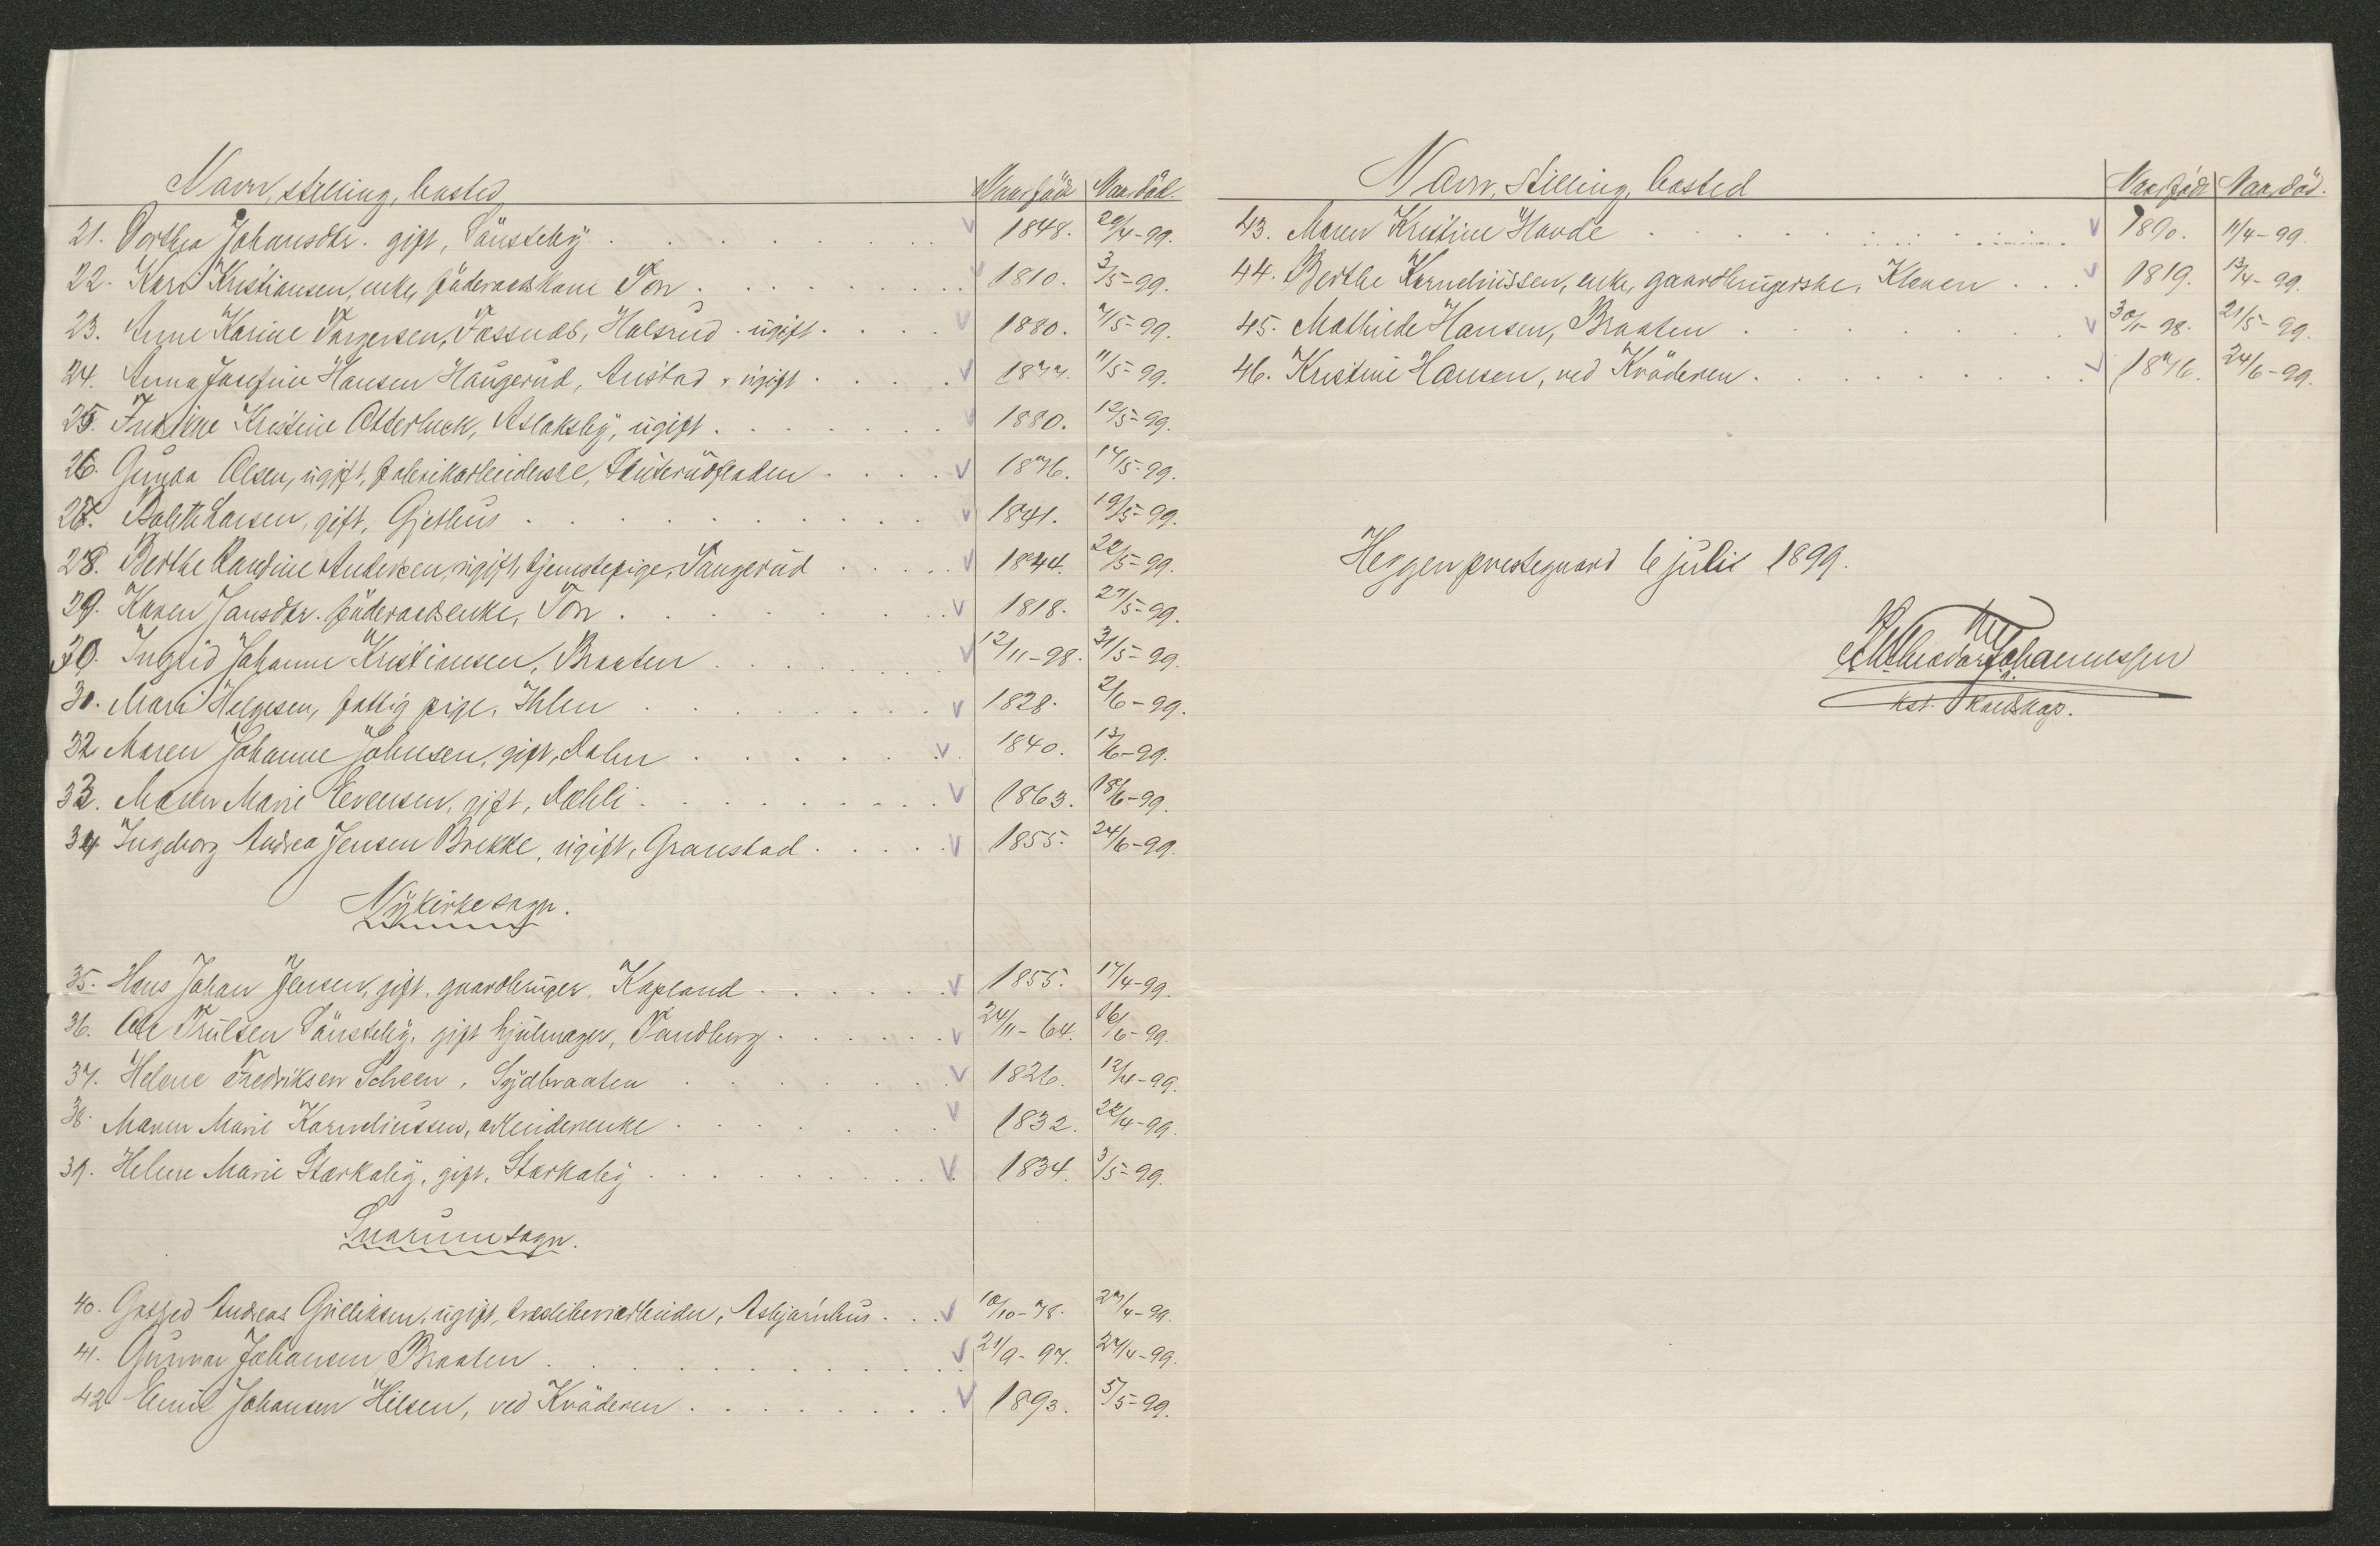 Navn, stilling, bosted Naar født Naar död.
21. Dorthea Johansdtr. gift, Sönsteby 1848. 29/4-99.
22. Kari Kristiansen, enke, föderaadskone Ton 1810. 3/5-99.
23. Anne Karine Torgersen, Fossnæs, Halsrud ugift 1880. 7/5-99.
24. Anna Josefine Hansen Haugerud, ugift 1877. 11/5-99.
25. Kristine Otterbeck, Aslaksby, ugift 1880. 12/5-99.
26. Gunda Olsen, ugift, fabrikarbeiderske, 1876. 17/5-99.
27. Bolette Larsen, gift, Gjethus 1841. 19/5-99.
28. Berthe Andersen, ugift, tjenestepige, 1844. 22/5-99.
29. Karen Jansdtr. föderaadsenke, Ton 1818. 27/5-99.
30. Ingrid Johanne Kristiansen, Braaten 12/11-98. 31/5-99.
30. Mari Helgesen, fattig pige, Ihlen 1828. 2/6-99.
32 Maren Johanne Johnsen, gift, Dalen 1840. 13/6-99.
33. Maren Marie Evensen, gift, Dæhli 1863. 18/6-99.
34 Ingeborg Andrea Jensen Brekke, ugift, Granstad 1855. 24/6-99.
Nykirke sogn.
35. Hans Johan Jensen, gift, gaardbruger, Kopland 1855. 17/4-99.
36. Ole Trulsen Sönsteby, gift hjulmager, Sandberg 24/11-64. 16/6-99.
37. Helene Fredriksen Scheen, Sydbraaten 1826. 12/4-99.
38. Maren Marie Korneliussen, arbeiderenke 1832. 22/4-99.
39. Helene Marie Storkaby, gift, Storkaby 1834. 3/5-99.
Snarum sogn.
40. Andreas Gulliksen, ugift, træsliberiarbeider, 10/10-78. 27/4-99.
41. Gunnar Johansen Braaten 21/9-97. 27/4-99.
42 Emil Johansen Hilsen, ved Kröderen 1893. 5/5-99.
Navn, stilling, bosted Naar født Naar død.
43. Maren Kristine Hovde 1890. 11/4-99.
44. Berthe Korneliussen, enke, gaardbrugerske, Kloven 1819. 13/4-99.
45. Mathilde Hansen, Braaten 30/1-98. 21/5-99.
46. Kristine Hansen, ved Kröderen 1876. 24/6-99.
Heggen prestegaard 6 juli 1899.
Johannessen
kst.